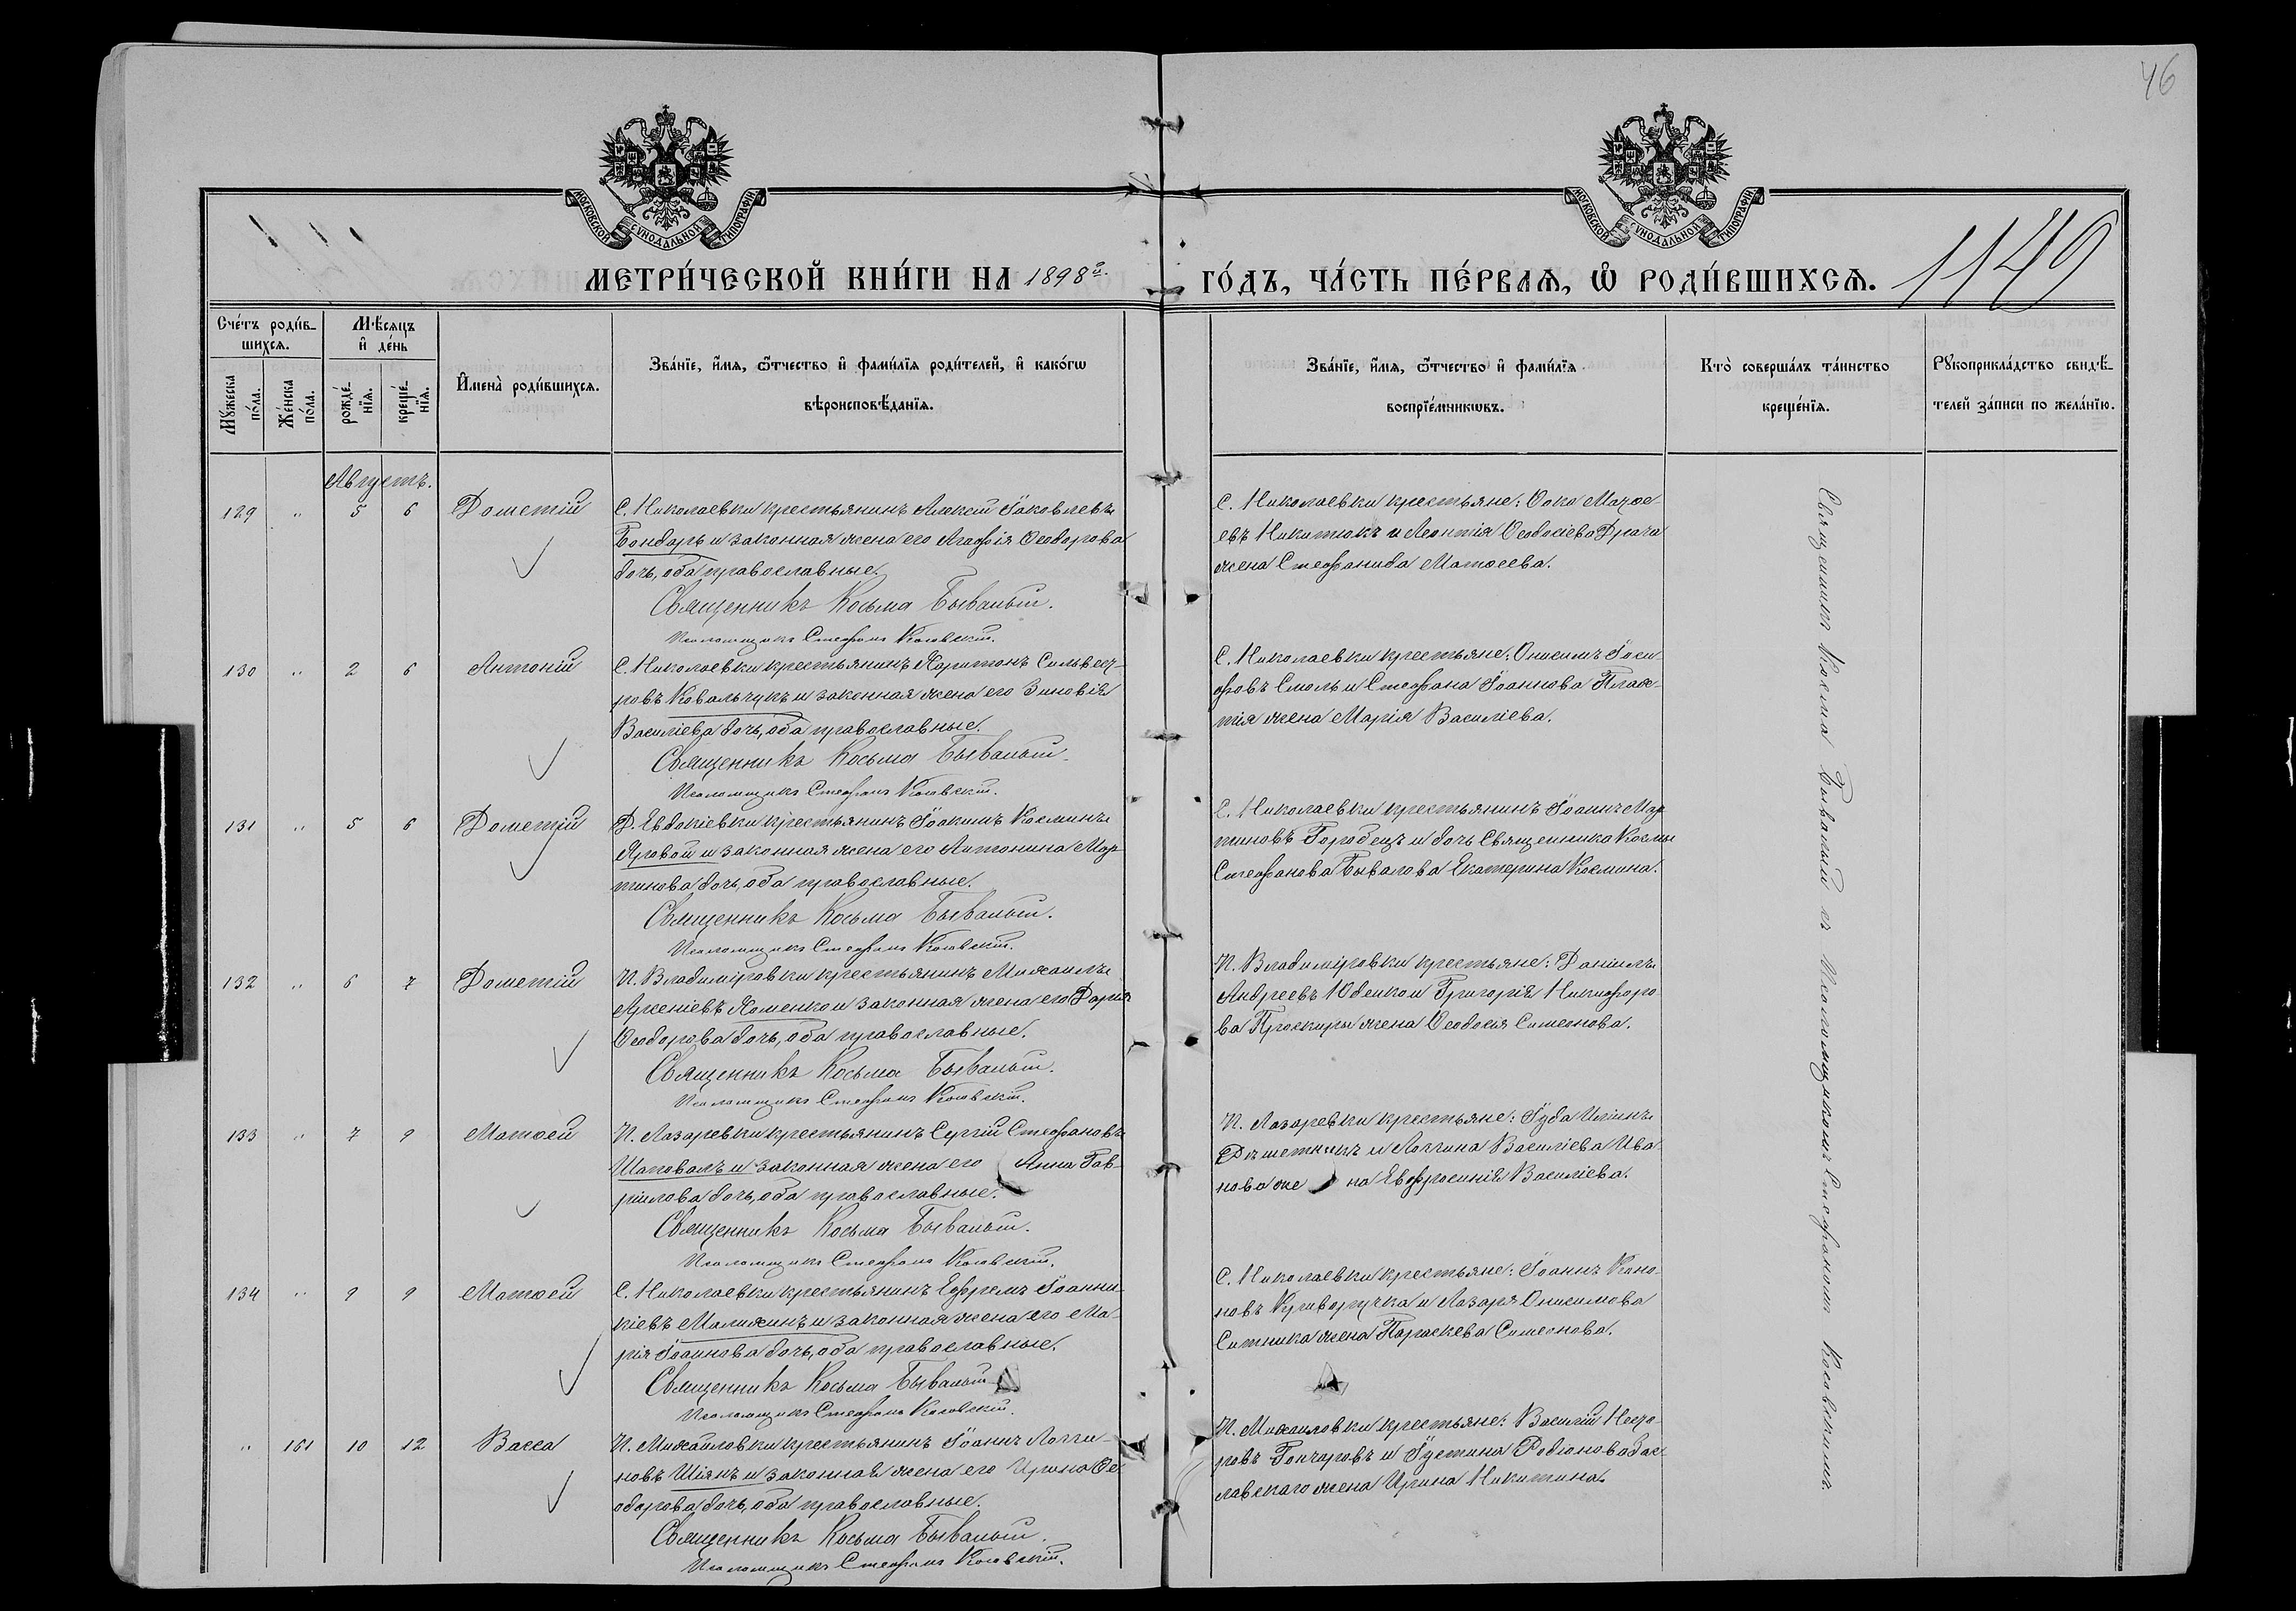 46
МОСКОВСКОЙ СѴНОДАЛЬНОЙ ТИПОГРАФІИ
МОСКОВСКОЙ СѴНОДАЛЬНОЙ ТИПОГРАФІИ
МЕТРИ́ЧЕСКОЙ КНИ́ГИ НА 1898й.
ГО́ДЪ, ЧА́СТЬ ПЕ́РВАѦ, Ѽ РОДИ́ВШИХСѦ.
1149
Сче́тъ роди́в-
шихсѧ.
Мꙋ́жеска по́ла.
Же́нска по́ла.
Мѣ́сѧцъ
и҆ де́нь
рожде́-
нїѧ.
креще́-
нїѧ.
И҆мена̀ роди́вшихсѧ.
Зва́нїе, и҆́мѧ, ѻ҆́тчество и҆ фами́лїѧ роди́телей, и҆ како́гѡ
вѣроисповѣ́данїѧ.
Зва́нїе, и҆́мѧ, ѻ҆́тчество и҆ фами́лїѧ
воспрїе́мникѡвъ.
Кто̀ соверша́лъ та́инство
креще́нїѧ.
Рꙋкоприкла́дство свидѣ́-
телей за́писи по жела́нїю.
Августъ.
129 " 5 6 Дометій
С. Николаевки крестьянинъ Алексій Іаковлевъ
Бондарь и законная жена его Агафія Ѳеодорова
дочь, оба православные.
Священникъ Косьма Бывалый.
Псаломщикъ Стефанъ
С. Николаевки крестьяне: Ѳока Матѳе-
евъ Никитюкъ и Леонтія Ѳеодосіева Драча
жена Стефанида Матѳеева.
130 " 2 6 Антоній
С. Николаевки крестьянинъ Харитонъ Сильвест-
ровъ Ковальчукъ и законная жена его Зиновія
Василіева дочь, оба православные.
Священникъ Косьма Бывалый.
Псаломщикъ Стефанъ
С. Николаевки крестьяне: Онисимъ Іоси-
фовъ Смоль и Стефана Іоаннова
жена Марія Василіева.
131 " 5 6 Дометій
Д. Евдокіевки крестьянинъ Іоакимъ Косминъ
Яровой и законная жена его Антонина Мар-
тинова дочь, оба православные.
Священникъ Косьма Бывалый.
Псаломщикъ Стефанъ
С. Николаевки крестьянинъ Іоаннъ Мар-
тиновъ Городецъ и дочь Священника Космы
Стефанова Бывалова Екатерина Космина.
132 " 6 7 Дометій
П. Владиміровки крестьянинъ Михаилъ
Арсеніевъ Хоменко и законная жена его Дарія
Ѳеодорова дочь, оба православные.
Священникъ Косьма Бывалый.
Псаломщикъ Стефанъ
П. Владиміровки крестьяне: Даніилъ
Андреевъ Юденко и Григорія Никифоро-
ва Проскуры жена Ѳеодосія Симеонова.
133 " 7 9 Матѳей
П. Лазаревки крестьянинъ Сергій Стефановъ
Шаповалъ и законная жена его Анна Гав-
ріилова дочь, оба православные.
Священникъ Косьма Бывалый.
Псаломщикъ Стефанъ
П. Лазаревки крестьяне: Іуда Иліинъ
и Логгина Василіева Ива-
нова жена Евфросинія Василіева.
134 " 9 9 Матѳей
С. Николаевки крестьянинъ Ефремъ Іоанни-
кіевъ Малихинъ и законная жена его Ма-
рія Іоаннова дочь, оба православные.
Священникъ Косьма Бывалый
Псаломщикъ Стефанъ
С. Николаевки крестьяне: Іоаннъ Коно-
новъ Криворучка и Лазаря Онисимова
Ситника жена Параскева Симеонова.
" 161 10 12 Васса
П. Михайловки крестьянинъ Іоаннъ Логги-
новъ Шіянъ и законная жена его Ирина Ѳе-
одорова дочь, оба православные.
Священникъ Косьма Бывалый.
Псаломщикъ Стефанъ
П. Михайловки крестьяне: Василій Несто-
ровъ Гончаровъ и Іустина Родіонова Зас-
лавскаго жена Ирина Никитина.
Священникъ Косьма Бывалый съ Псаломщикомъ Стефаномъ